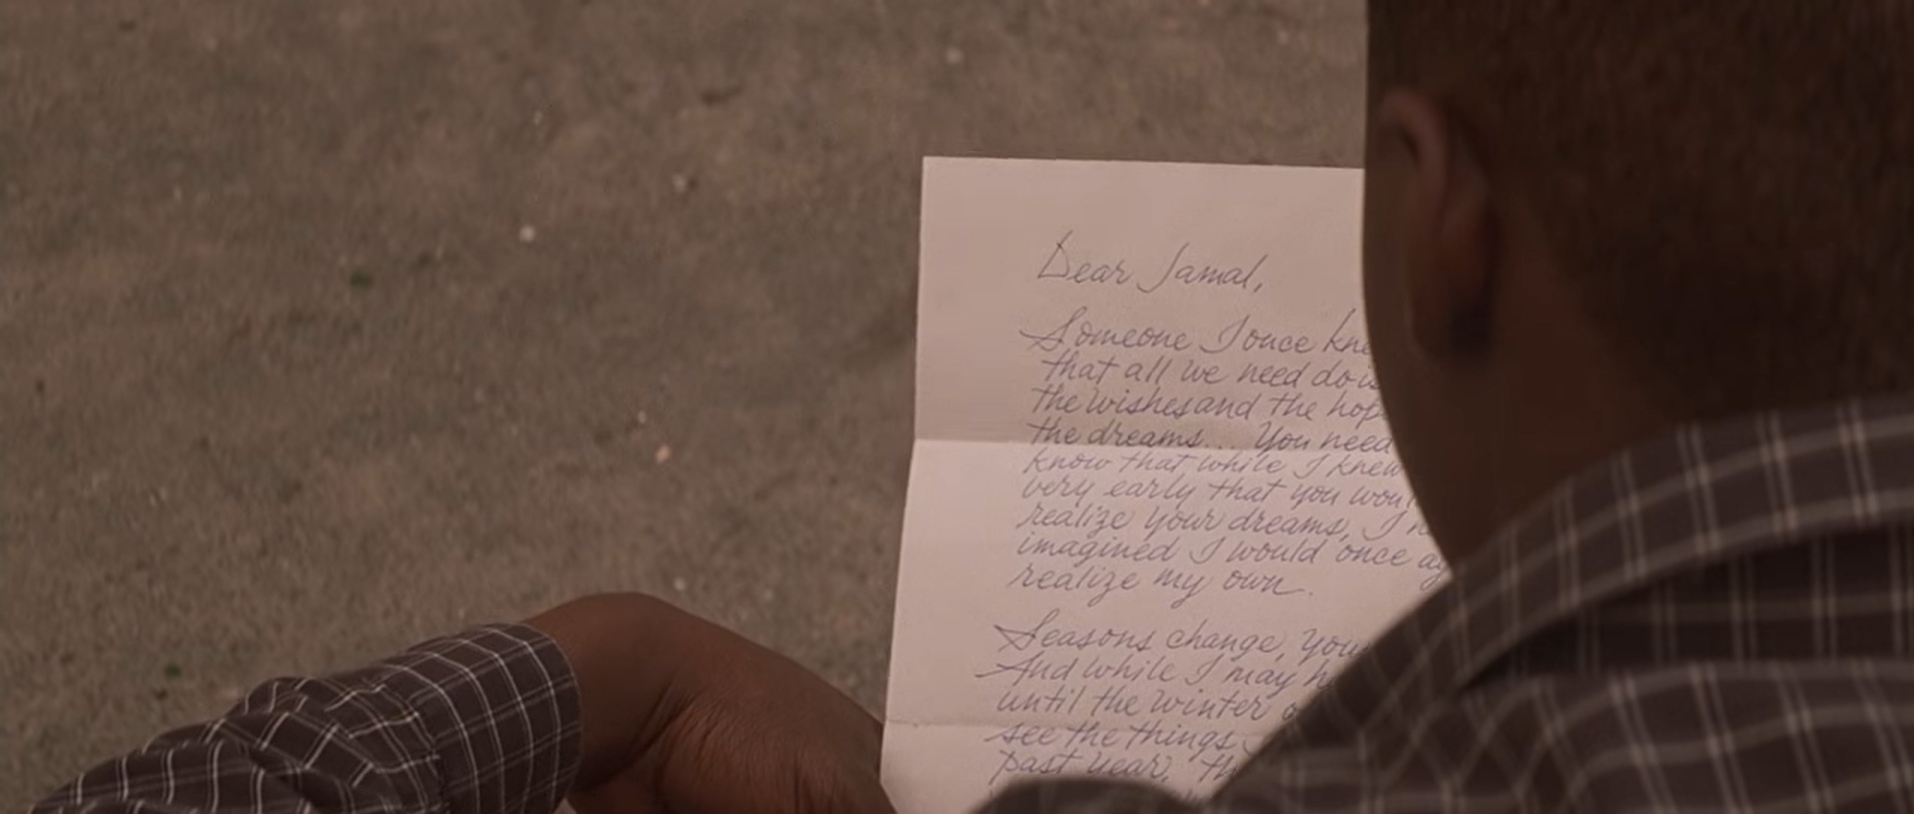 Dear Jamal,
Someone I once
that all we need do
the wishes and the
the dreams... You need
know that while I knew
very early that you
realize your dreams, I
imagined I would once
realize my own.
Seasons change,
And while I may
until the winter
see the things
past year,